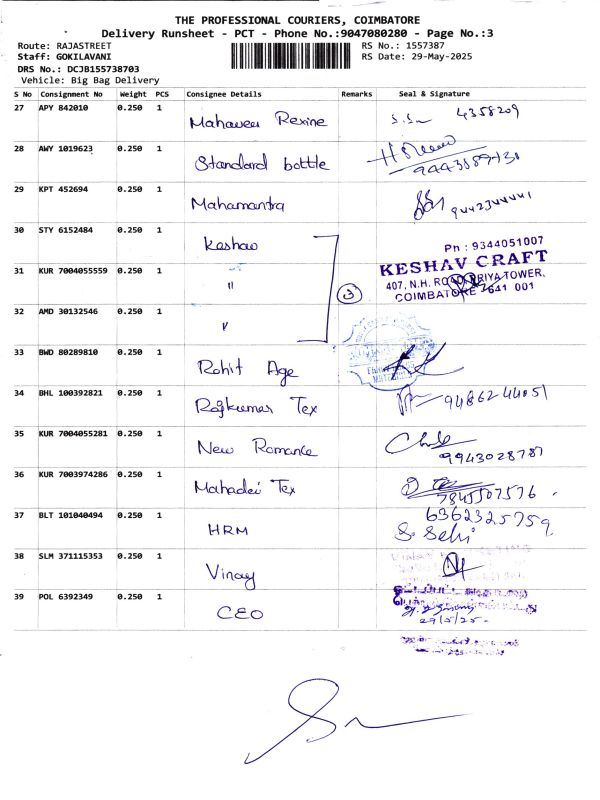 THE PROFESSIONAL COURIERS, COIMBATORE
Delivery Runsheet - PCT - Phone No.:9047080280 - Page No.:3
Route: RAJASTREET
RS No.: 1557387
Staff: GOKILAVANI
RS Date: 29-May-2025
DRS No.: DCJB155738703
Vehicle: Big Bag Delivery
S No Consignment No Weight PCS Consignee Details Remarks Seal & Signature
27 APY 842010 0.250 1 Mahaveer Rexine 4358209
28 AWY 1019623 0.250 1 Standard bottle
29 KPT 452694 0.250 1 Mahamantra
30 STY 6152484 0.250 1 Keshav
Ph : 9344051007
KESHAV CRAFT
31 KUR 7004055559 0.250 1 "
407, N.H. ROAD, PRIYA TOWER,
COIMBATORE - 641 001
3
32 AMD 30132546 0.250 1 "
33 BWD 80289810 0.250 1 Rohit Age
34 BHL 100392821 0.250 1 Rajkumar Tex 9486244051
35 KUR 7004055281 0.250 1 New Romance
9943028787
36 KUR 7003974286 0.250 1 Mahadei Tex
7845507576
37 BLT 101040494 0.250 1 HRM 6362325759
38 SLM 371115353 0.250 1 Vinay
39 POL 6392349 0.250 1 CEO
29/5/25